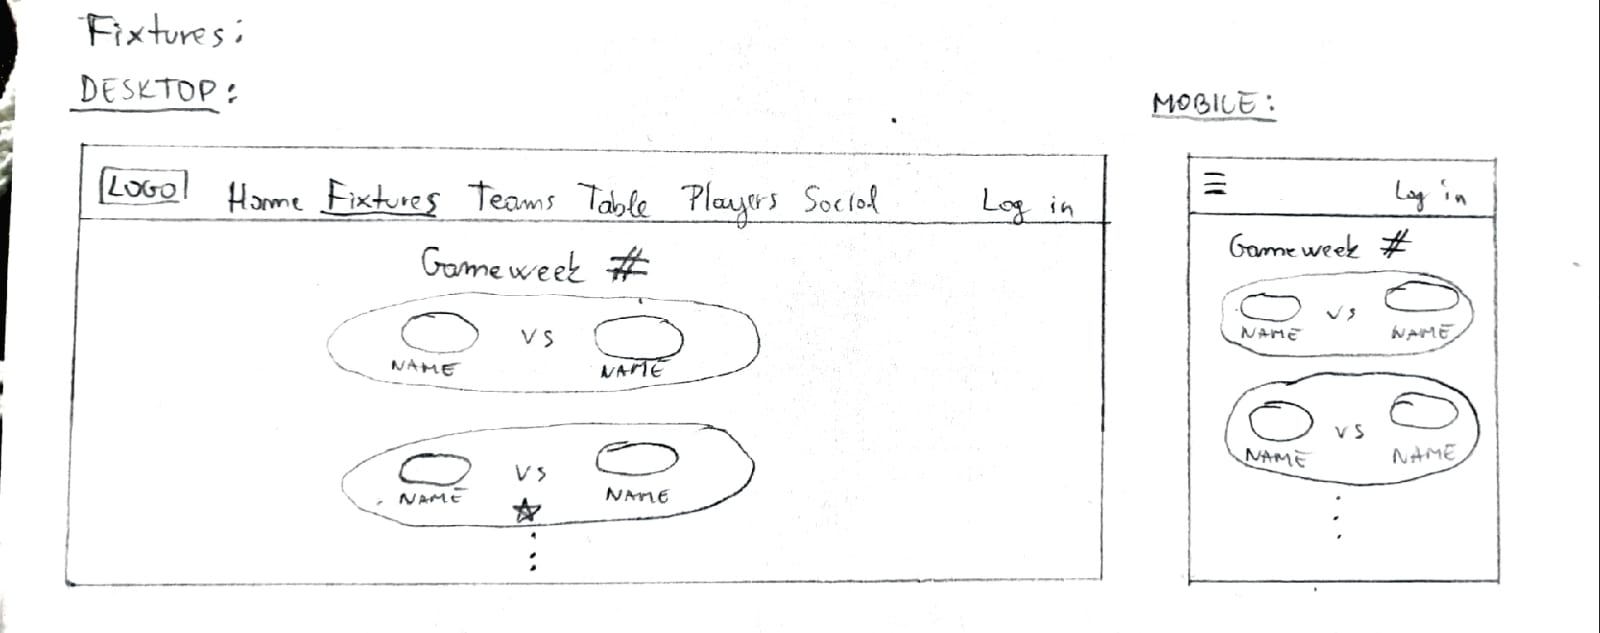 Fixtures:
DESKTOP:
LOGO Home Fixtures Teams Table Players Social Log in
Gameweek #
VS
NAME NAME
VS
NAME NAME
MOBILE:
Log in
Gameweek #
VS
NAME NAME
VS
NAME NAME